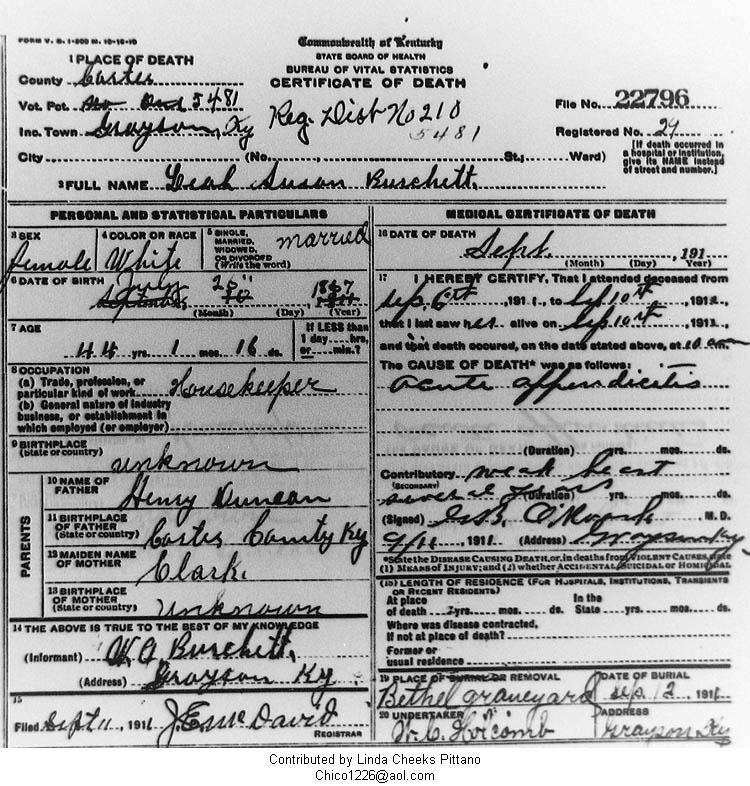 FORM V. S. 1-300 M. 10-16-10
Commonwealth of Kentucky
STATE BOARD OF HEALTH
BUREAU OF VITAL STATISTICS
CERTIFICATE OF DEATH
1 PLACE OF DEATH
County Carter
Vot. Pct. 5481
Inc. Town Grayson, Ky
Reg. Dist No 210
5481
File No. 22796
Registered No. 29
[If death occurred in
a hospital or institution,
give its NAME instead
of street and number.]
City (No. , St.; Ward)
2 FULL NAME Leah Susan Burchett.
PERSONAL AND STATISTICAL PARTICULARS
3 SEX
female
4 COLOR OR RACE
White
5 SINGLE,
MARRIED,
WIDOWED,
OR DIVORCED
(Write the word)
married
6 DATE OF BIRTH
July 25 1867
(Month) (Day) (Year)
7 AGE
44 yrs. 1 mos. 16 ds.
If LESS than
1 day hrs.
or min.?
8 OCCUPATION
(a) Trade, profession, or
particular kind of work Housekeeper
(b) General nature of industry
business, or establishment in
which employed (or employer)
9 BIRTHPLACE
(State or country)
unknown
PARENTS
10 NAME OF
FATHER
Henry Duncan
11 BIRTHPLACE
OF FATHER
(State or country)
Carter County Ky
12 MAIDEN NAME
OF MOTHER
Clark.
13 BIRTHPLACE
OF MOTHER
(State or country)
unknown
14 THE ABOVE IS TRUE TO THE BEST OF MY KNOWLEDGE
(Informant) W. A Burchett,
(Address) Grayson Ky
15
Filed Sept 11, 1911 J.E. McDavid
REGISTRAR
MEDICAL CERTIFICATE OF DEATH
16 DATE OF DEATH
Sept. , 191
(Month) (Day) (Year)
17 I HEREBY CERTIFY, That I attended deceased from
Sep. 6th, 1911, to Sep 10th, 1911,
that I last saw her alive on Sep 10th, 1911,
and that death occured, on the date stated above, at 10 am
The CAUSE OF DEATH* was as follows:
acute appendicitis
(Duration) yrs. mos. ds.
Contributory weak heart
(SECONDARY)
several years
(Duration) yrs. mos. ds.
(Signed) M. D.
9/11, 1911 (Address) Grayson Ky
*State the DISEASE CAUSING DEATH, or, in deaths from VIOLENT CAUSES, state
(1) MEANS OF INJURY; and (2) whether ACCIDENTAL, SUICIDAL or HOMICIDAL
(15) LENGTH OF RESIDENCE (FOR HOSPITALS, INSTITUTIONS, TRANSIENTS
OR RECENT RESIDENTS)
At place
of death yrs. mos. ds.
In the
State yrs. mos. ds.
Where was disease contracted,
If not at place of death?
Former or
usual residence
19 PLACE OF BURIAL OR REMOVAL
Bethel graveyard
DATE OF BURIAL
Sep. 12, 1911
20 UNDERTAKER
W. C. Holcomb
ADDRESS
Grayson, Ky
Contributed by Linda Cheeks Pittano
Chico1226@aol.com